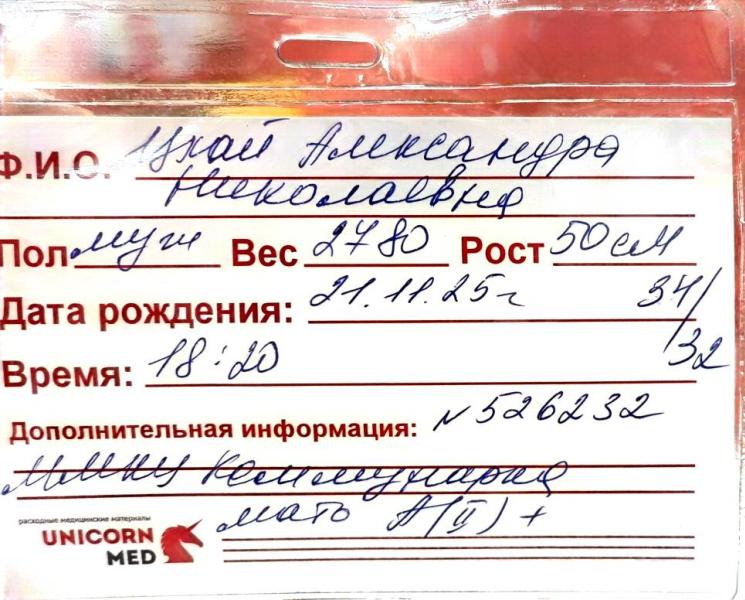 Ф.И.О. Цхай Александра
Николаевна
Пол муж Вес 2780 Рост 50 см
Дата рождения: 21.11.25г 34/
Время: 18:20 32
Дополнительная информация: N 526232
ММКЦ Коммунарка
мать A(II) +
расходные медицинские материалы
UNICORN
MED